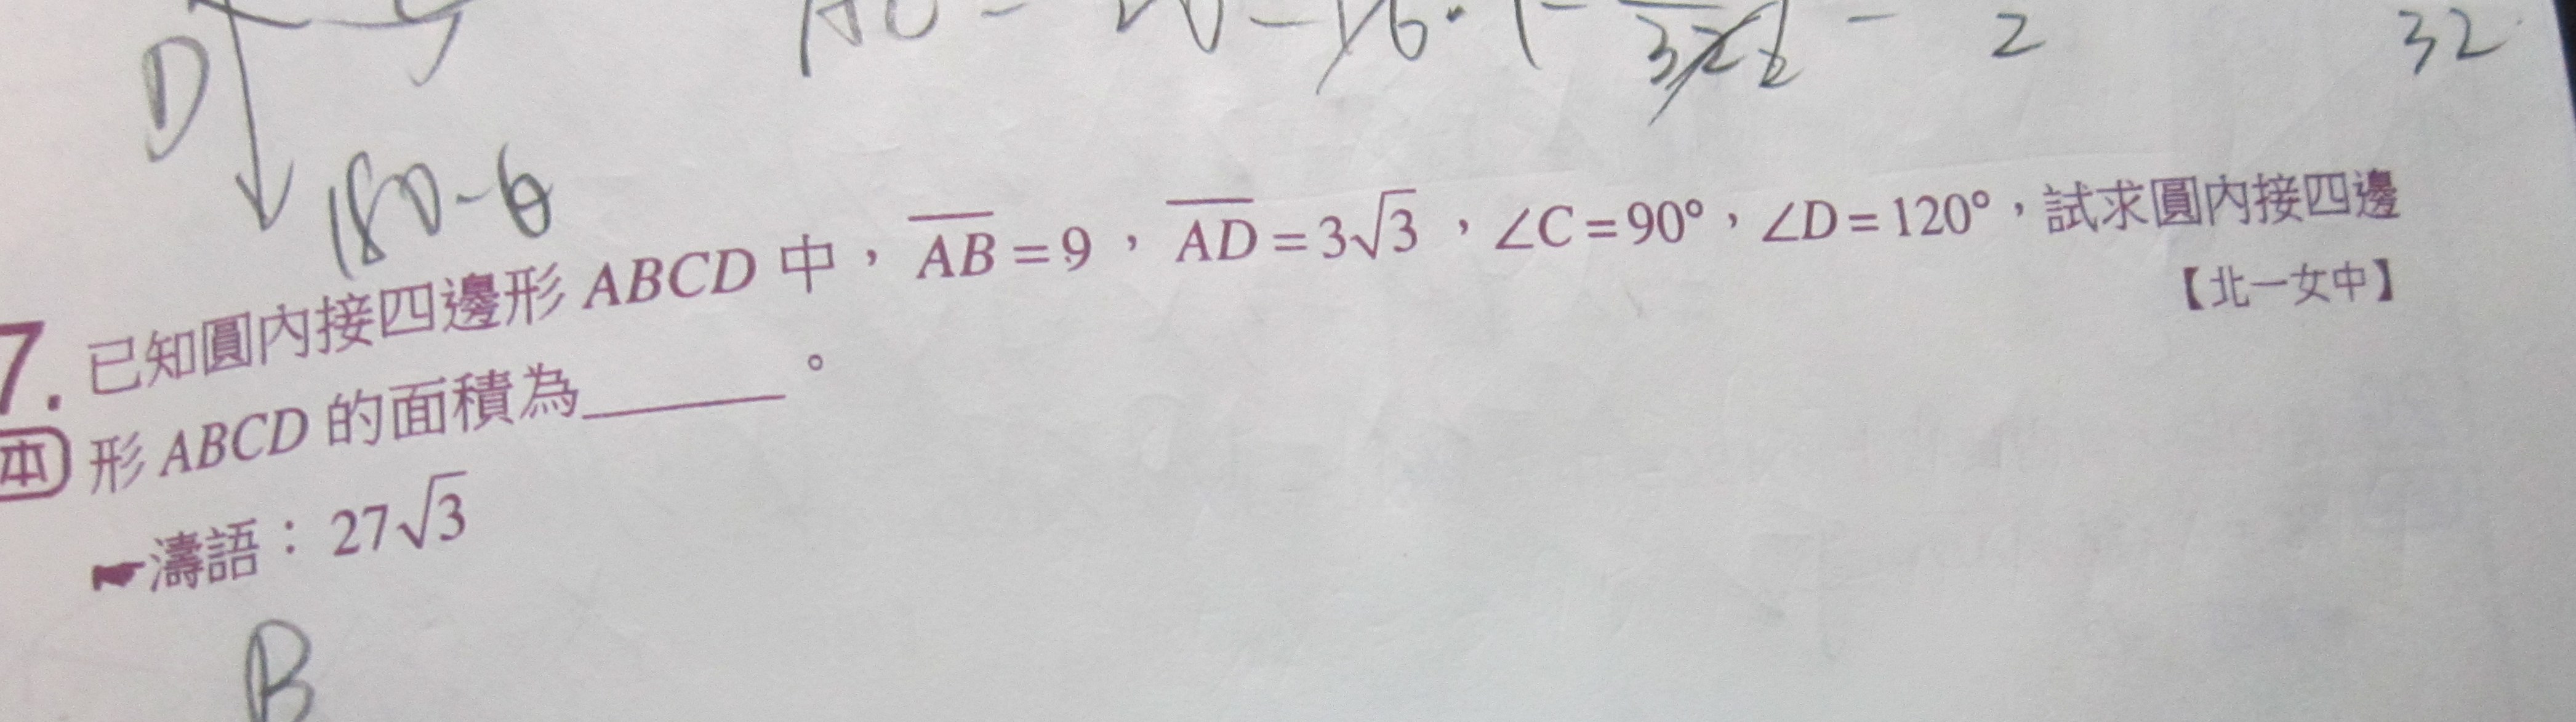 D
32
2
32
180-θ
7. 已知圓內接四邊形 ABCD 中，AB=9，AD=3√3，∠C=90°，∠D=120°，試求圓內接四邊
本 形 ABCD 的面積為______。【北一女中】
☛濤語：27√3
B